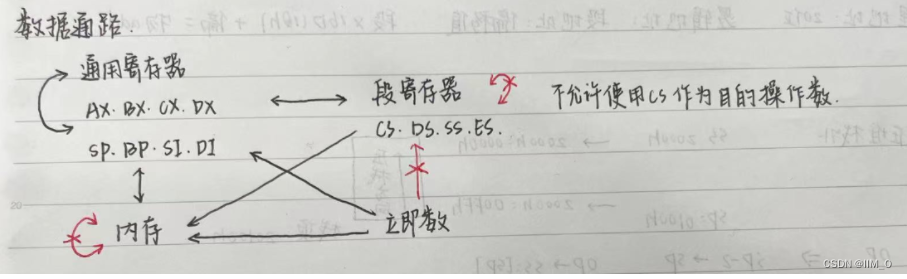 数据通路.
通用寄存器
AX. BX. CX. DX
SP. BP. SI. DI
段寄存器
CS. DS. SS. ES.
不允许使用CS作为目的操作数.
内存
立即数
20
CSDN @IIM_O